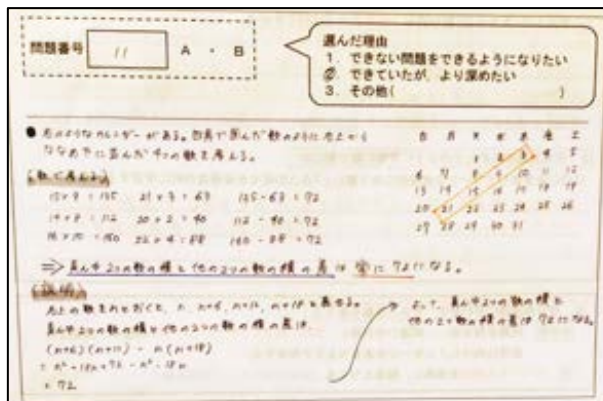 問題番号 11 A ・ B
選んだ理由
1. できない問題をできるようになりたい
②. できていたが、より深めたい
3. その他( )
● 右のようなカレンダーがある。 で囲んだ数のように右上から
ななめ下に並んだ4つの数を考える。
日 月 火 水 木 金 土
1 2 3 4 5
6 7 8 9 10 11 12
13 14 15 16 17 18 19
20 21 22 23 24 25 26
27 28 29 30 31
(数で考える)
15×9=135 21×3=63 135-63=72
14×8=112 20×2=40 112-40=72
16×10=160 22×4=88 160-88=72
⇒ 真ん中2つの数の積と他の2つの数の積の差は常に72になる。
(説明)
右上の数をnとおくと、n, n+6, n+12, n+18と表せる。
真ん中2つの数の積と他の2つの数の積の差は
(n+6)(n+12) - n(n+18)
= n²+18n+72-n²-18n
= 72
よって、真ん中2つの数の積と
他の2つの数の積の差は72になる。